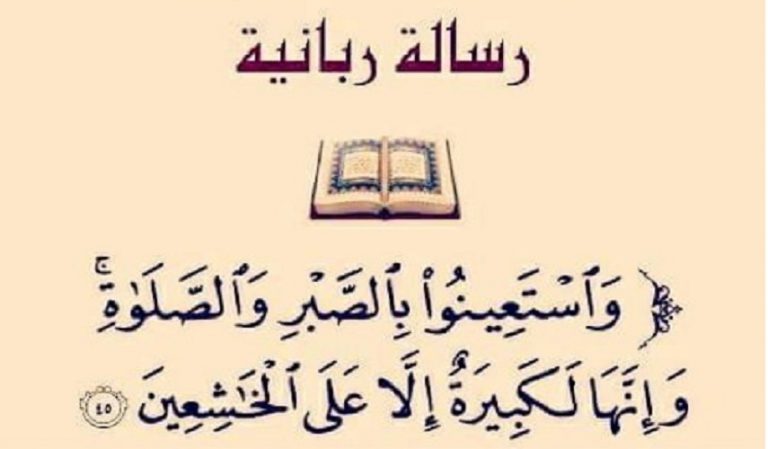 رسالة ربانية
﴿ وَٱسْتَعِينُوا۟ بِٱلصَّبْرِ وَٱلصَّلَوٰةِ ۚ
وَإِنَّهَا لَكَبِيرَةٌ إِلَّا عَلَى ٱلْخَـٰشِعِينَ ٤٥